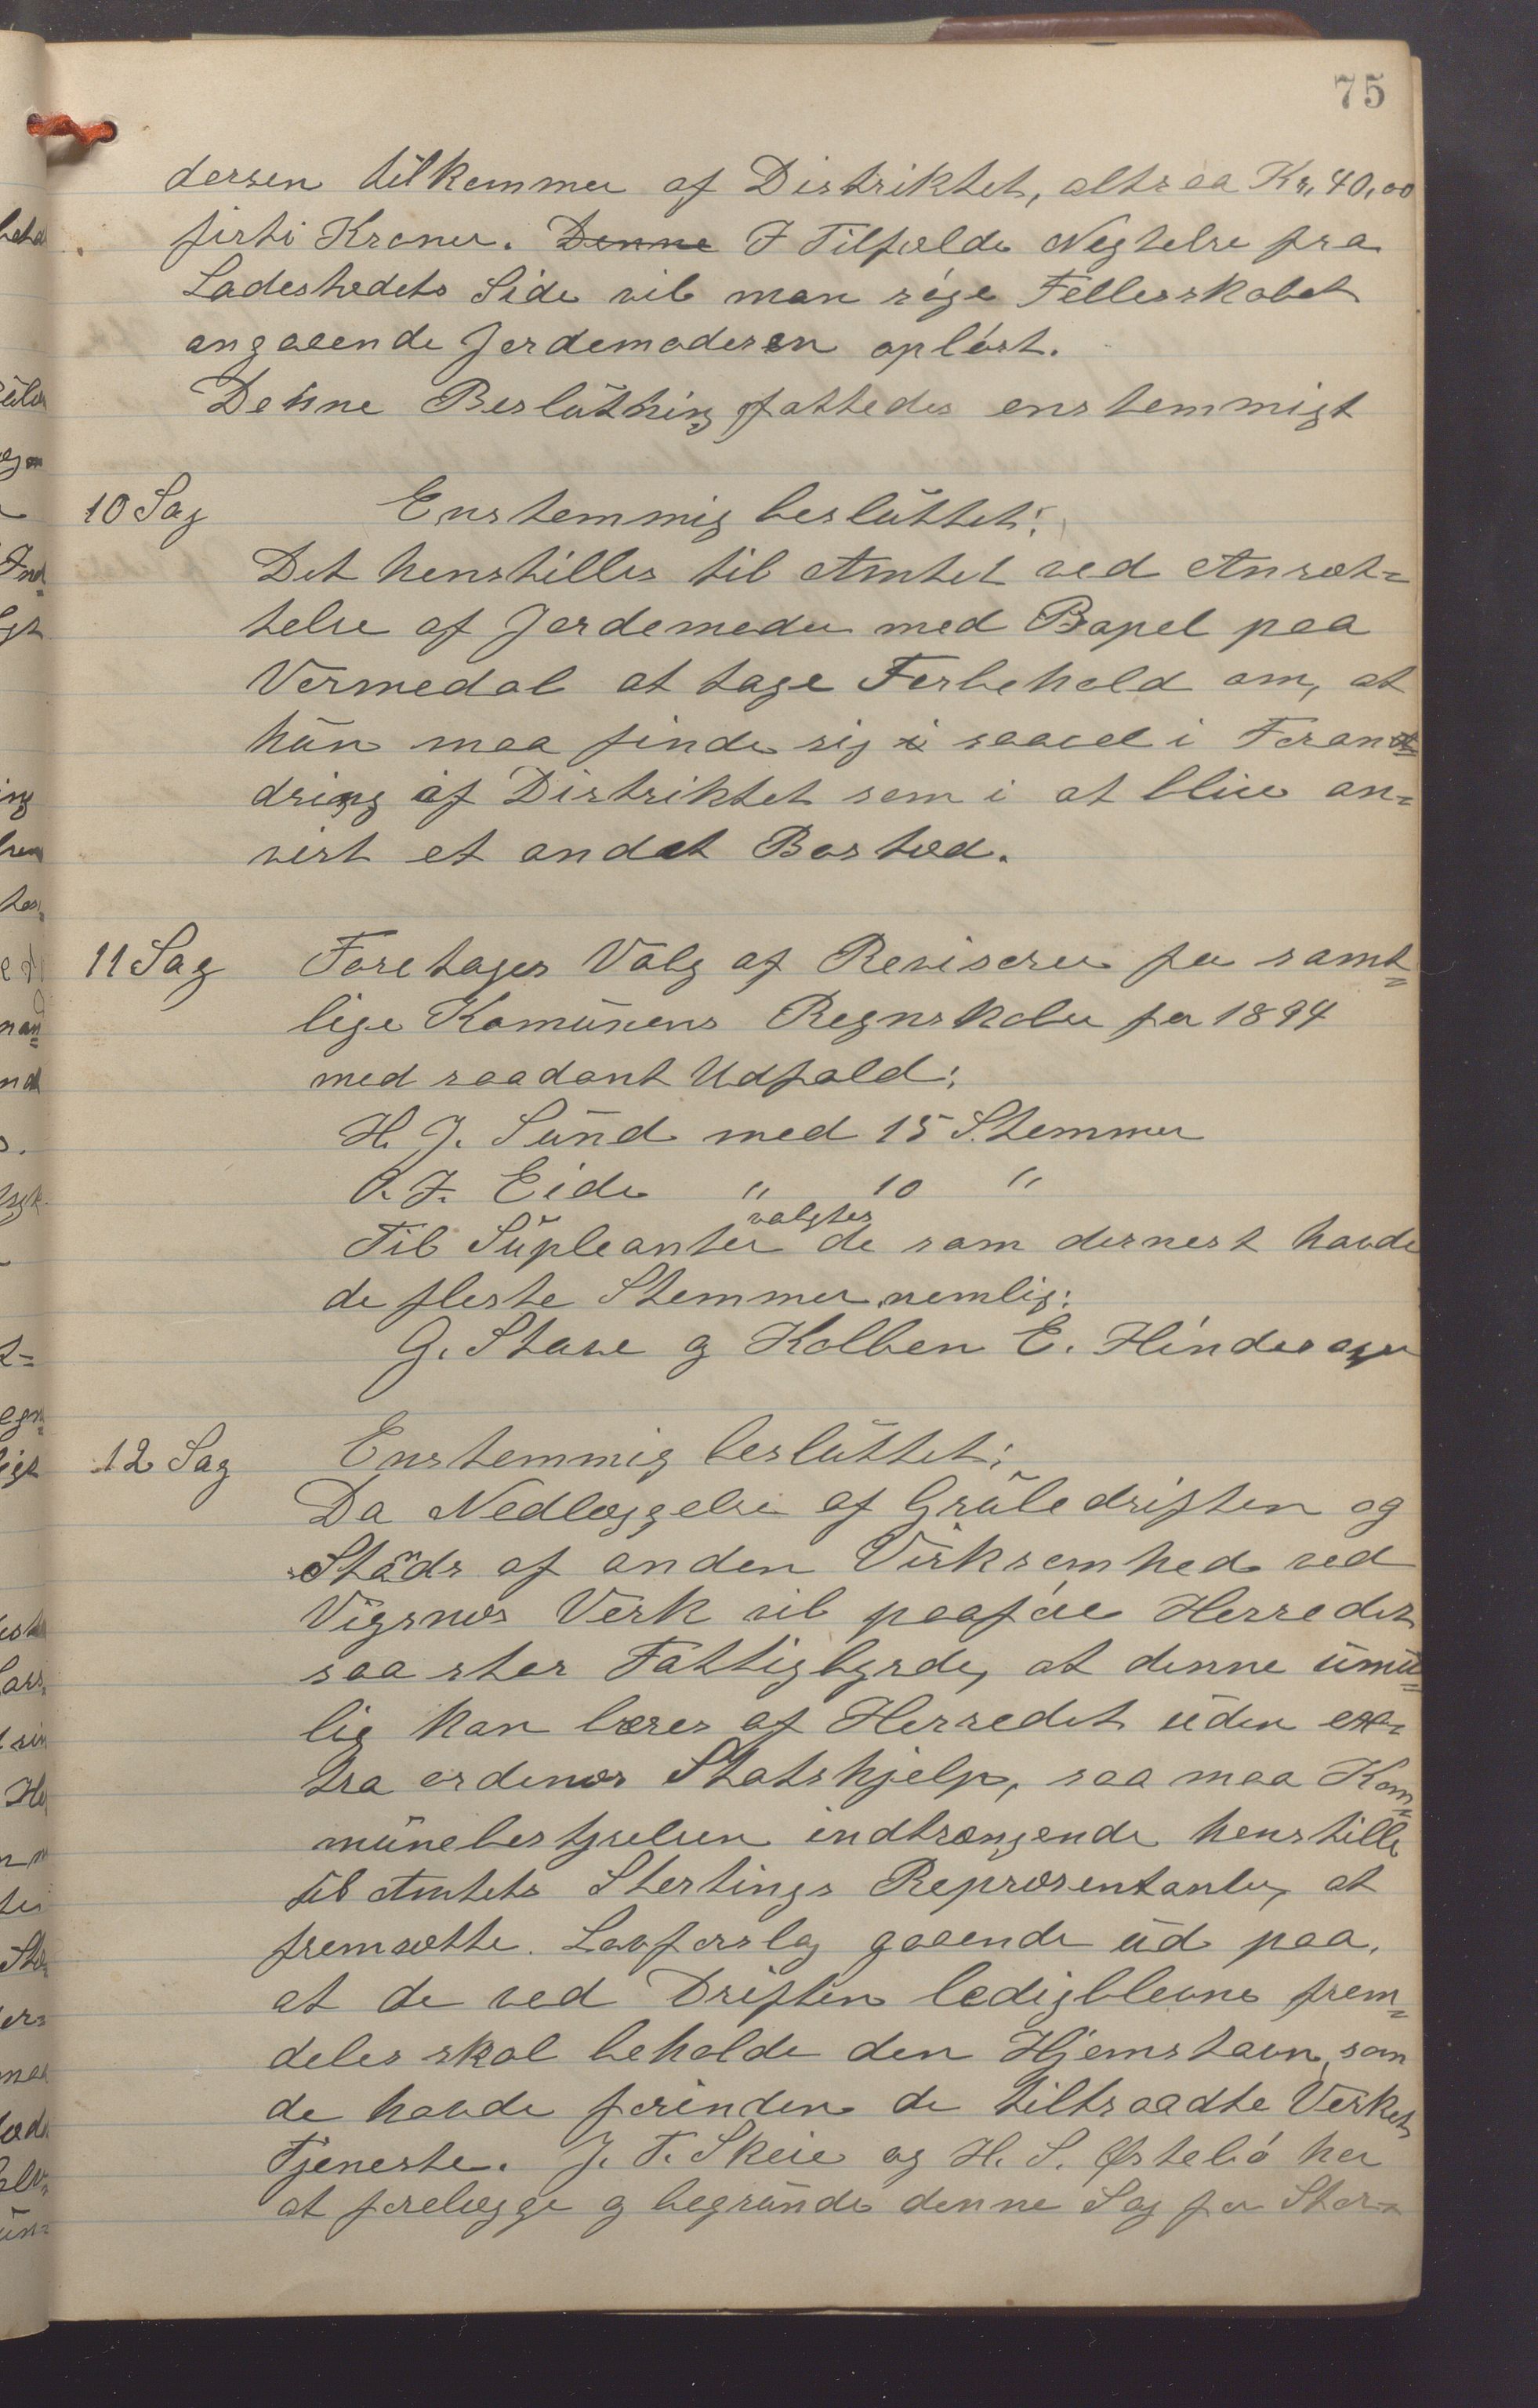 75
dersen tilkommer af Distriktet, altsaa Kr. 40,00
firti Kroner. Denne I Tilfælde Negtelse fra
Ladestedets Side vil man søge Fellesskabet
angaaende Jordemoderen opløst.
Denne Beslutning fattedes enstemmigt
10 Sag Enstemmig besluttet:
Det henstilles til Amtet ved Ansæt=
telse af Jordemoder med Bopel paa
Vormedal at tage Forbehold om, at
hun maa finde sig i saavel i Foran=
dring af Distriktet som i at blive an=
vist et andet Bosted.
11 Sag Foretages Valg af Revisorer for samt=
lige Komunens Regnskaber for 1894
med saadant Udfald:
H. J. Sund med 15 Stemmer
O. J. Eide " 10 "
valgtes
Til Supleanter de som dernest havde
de fleste Stemmer nemlig:
G. Stave og Kolben E. Hinderager
12 Sag Enstemmig besluttet:
Da Nedlæggelse af Grubedriften og
Stands af anden Virksomhed ved
Vigsnæs Verk vil paaføre Herredet
saa stor Fattigbyrde, at denne umu=
lig kan bæres af Herredet uden ex=
tra ordinær Statshjelp, saa maa Kom=
munebestyrelsen indtrængende henstille
til Amtets Stortings Repræsentanter, at
fremsætte Lovforslag gaaende ud paa,
at de ved Driften ledigblevne frem=
deles skal beholde den Hjemstavn, som
de havde forinden de tiltraadte Verkets
Tjeneste. J. T. Skeie og H. S. Østebø har
at forelægge og begrunde denne Sag for Stor=